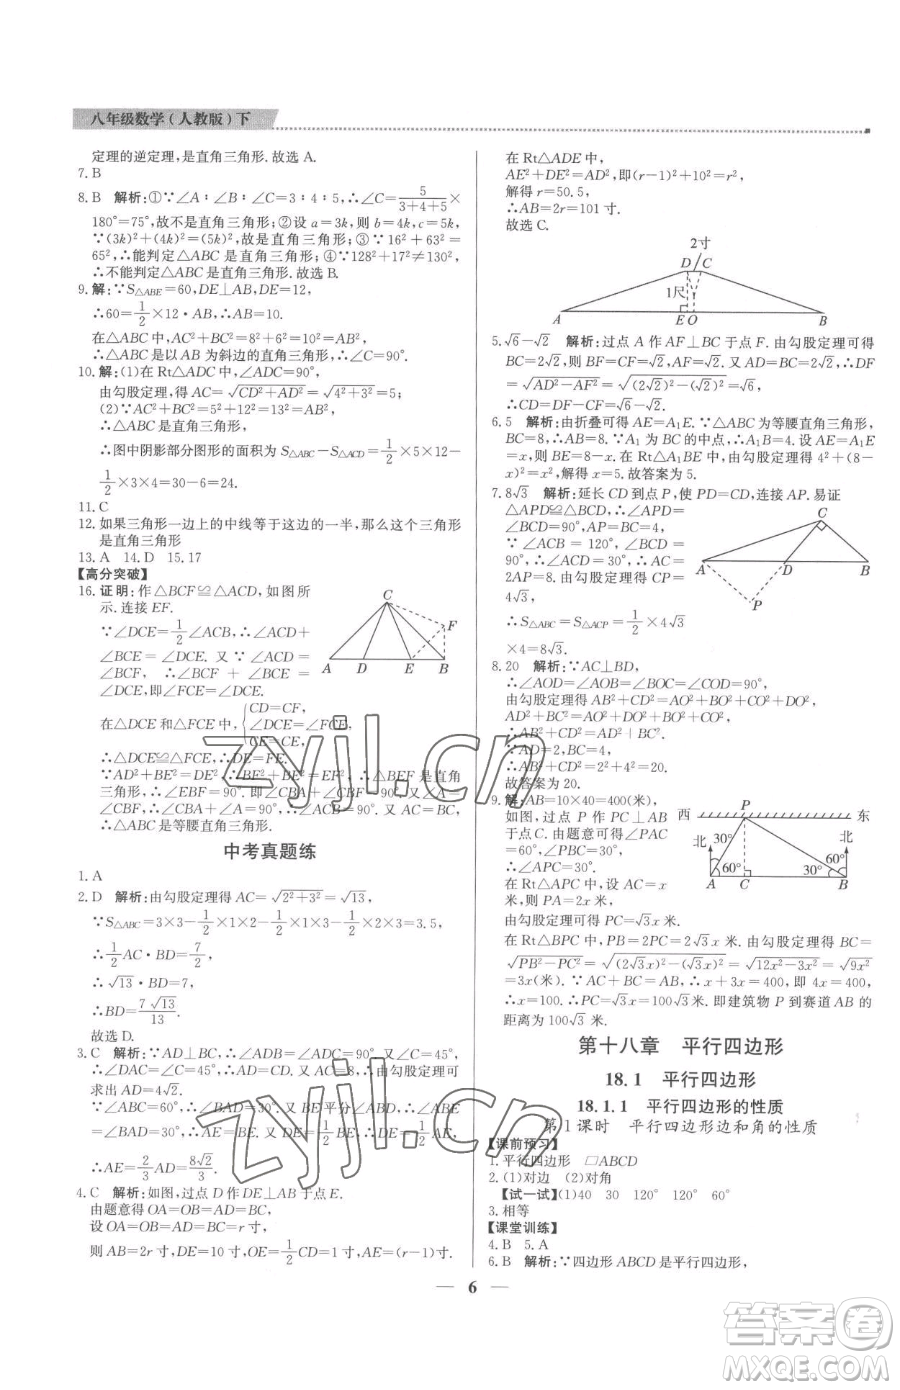 八年级数学(人教版)下
定理的逆定理,是直角三角形.故选 A.
7. B
8. B 解析:①∵∠A∶∠B∶∠C=3∶4∶5,∴∠C=5/(3+4+5)×
180°=75°,故不是直角三角形;②设 a=3k,则 b=4k,c=5k,
∵(3k)²+(4k)²=(5k)²,故是直角三角形;③∵16²+63²=
65²,∴能判定△ABC 是直角三角形;④∵128²+17²≠130²,
∴不能判定△ABC 是直角三角形.故选 B.
9. 解:∵S△ABE=60,DE⊥AB,DE=12,
∴60=1/2×12·AB,∴AB=10.
在△ABC 中,AC²+BC²=8²+6²=10²=AB²,
∴△ABC 是以 AB 为斜边的直角三角形,∴∠C=90°.
10. 解:(1)在 Rt△ADC 中,∠ADC=90°,
由勾股定理,得 AC=√(CD²+AD²)=√(4²+3²)=5;
(2)∵AC²+BC²=5²+12²=13²=AB²,
∴△ABC 是直角三角形,
∴图中阴影部分图形的面积为 S△ABC-S△ACD=1/2×5×12-
1/2×3×4=30-6=24.
11. C
12. 如果三角形一边上的中线等于这边的一半,那么这个三角形
是直角三角形
13. A 14. D 15. 17
【高分突破】
16. 证明:作△BCF≌△ACD,如图所
示.连接 EF.
∵∠DCE=1/2∠ACB,∴∠ACD
+∠BCE=∠DCE.又∵∠ACD=
∠BCF,∴∠BCF+∠BCE=
∠DCE,即∠FCE=∠DCE.
C F A D E B
在△DCE 和△FCE 中,{CD=CF,
∠DCE=∠FCE,
CE=CE,
∴△DCE≌△FCE,∴DE=FE.
∵AD²+BE²=DE²,∴BF²+BE²=FE²,∴△BEF 是直角
三角形,∴∠EBF=90°,即∠CBA+∠CBF=90°.又∵∠A=
∠CBF,∴∠CBA+∠A=90°,∴∠ACB=90°.又∵AC=BC,
∴△ABC 是等腰直角三角形.
中考真题练
1. A
2. D 解析:由勾股定理得 AC=√(2²+3²)=√13,
∵S△ABC=3×3-1/2×1×2-1/2×1×3-1/2×2×3=3.5,
∴1/2AC·BD=7/2,
∴√13·BD=7,
∴BD=7√13/13.
故选 D.
3. C 解析:∵AD⊥BC,∴∠ADC=∠ADB=90°.又∵∠C=45°,
∴∠DAC=∠C=45°,∴AD=CD,∴AC=√2AD,由此可
求出 AD=4√2.
∵∠ABC=60°,∴∠BAD=30°.又∵BE 平分∠ABC,
∴AE=2/3AD=8√2/3.
4. C 解析:如图,过点 D 作 DE⊥AB 于点 E.
由题意得 OA=OB=AD=BC,
设 OA=OB=AD=BC=r 寸,
则 AB=2r 寸,DE=10 寸,OE=1/2CD=1 寸,∴AE=(r-1)寸.
在 Rt△ADE 中,
AE²+DE²=AD²,即(r-1)²+10²=r²,
解得 r=50.5,
∴AB=2r=101 寸.
故选 C.
2寸 D C 1尺 A E O B
5. √6-√2 解析:过点 A 作 AF⊥BC 于点 F.由勾股定理可得
BC=2√2,则 BF=CF=√2,AF=√2.又 AD=BC=2√2,∴DF
=√(AD²-AF²)=√((2√2)²-(√2)²)=√6,
∴CD=DF-CF=√6-√2.
6. 5 解析:由折叠可得 AE=A₁E.∵△ABC 为等腰直角三角形,
BC=8,∴AB=8.∵A₁ 为 BC 的中点,∴A₁B=4.设 AE=A₁E
=x,则 BE=8-x.在 Rt△A₁BE 中,由勾股定理可得 4²+(8-
x)²=x²,解得 x=5.故答案为 5.
7. 8√3 解析:延长 CD 到点 P,使 PD=CD,连接 AP.易证
△APD≌△BCD,∴∠APD=
∠BCD=90°,AP=BC=4,
∵∠ACB = 120°,∴∠ACP=
30°.在 Rt△APC 中,AC=
2AP=8.由勾股定理得 CP=
4√3,
∴S△ABC=S△ACP=1/2×4√3
×4=8√3.
C A D B P
8. 20 解析:∵AC⊥BD,
∴∠AOD=∠AOB=∠BOC=∠COD=90°,
由勾股定理得 AB²+CD²=AO²+BO²+CO²+DO²,
AD²+BC²=AO²+DO²+BO²+CO²,
∴AB²+CD²=AD²+BC².
∵AD=2,BC=4,
∴AB²+CD²=2²+4²=20.
故答案为 20.
9. 解:AB=10×40=400(米),
如图,过点 P 作 PC⊥AB
于点 C.由题意可得∠PAC
=60°,∠PBC=30°,
∴∠APC=30°.
在 Rt△APC 中,设 AC=
x 米,则 PA=2x 米,
由勾股定理可得 PC=√3x 米.
西 P 东 北 30° 60° 北 60° 30° A C B
在 Rt△BPC 中,PB=2PC=2√3x 米.由勾股定理得 BC=
√(PB²-PC²)=√((2√3x)²-(√3x)²)=√(12x²-3x²)=√(9x²)
=3x(米).∵AC+BC=AB=400,∴x+3x=400,即 4x=400,
∴x=100,∴PC=√3x=100√3米,即建筑物 P 到赛道 AB 的
距离为 100√3 米.
第十八章 平行四边形
18.1 平行四边形
18.1.1 平行四边形的性质
第1课时 平行四边形边和角的性质
【课前预习】
1. 平行四边形 □ABCD
2. (1)对边 (2)对角
【试一试】(1)40 30 120° 120° 60°
3. 相等
【课堂训练】
4. B 5. A
6. B 解析:∵四边形 ABCD 是平行四边形,
6
zyjl.cn
zyjl.cn
答案圈
MXQE.COM